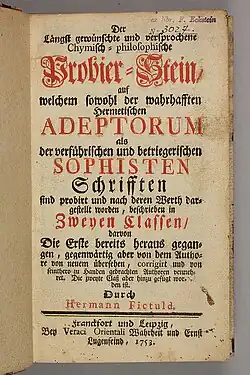 ex libr. F. Eckstein
N. 3027.
Der
Längst gewünschte und versprochene
Chymisch-philosophische
Probier-Stein/
auf
welchem sowohl der wahrhafften
Hermetischen
ADEPTORUM
als
der verführischen und betriegerischen
SOPHISTEN
Schrifften
sind probirt und nach deren Werth dar-
gestellt worden, beschrieben in
Zweyen Classen/
davon
Die Erste bereits heraus gegan-
gen, gegenwärtig aber von dem Autho-
re von neuem übersehen, corrigirt und von
seinthero zu Handen gebrachten Authoren vermeh-
ret. Die zweyte Claß aber hinzu gefügt wor-
den ist.
Durch
Hermann Fictuld.
Franckfort und Leipzig,
Bey Veraci Orientali Wahrheit und Ernst
Lugenfeind, 1753.